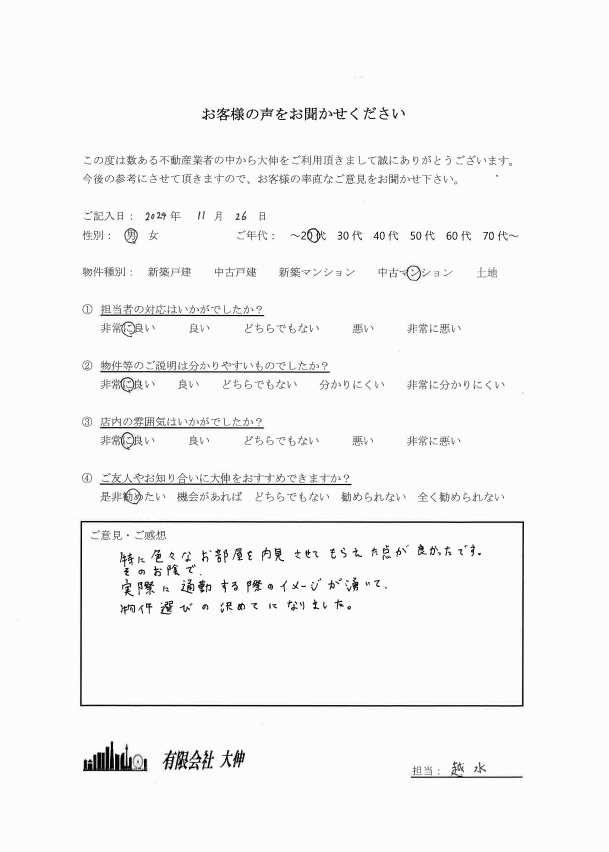 お客様の声をお聞かせください
この度は数ある不動産業者の中から大伸をご利用頂きまして誠にありがとうございます。
今後の参考にさせて頂きますので、お客様の率直なご意見をお聞かせ下さい。
ご記入日: 2024年 11月 26日
性別: 男 女 ご年代: ～20代 30代 40代 50代 60代 70代～
物件種別: 新築戸建 中古戸建 新築マンション 中古マンション 土地
① 担当者の対応はいかがでしたか？
非常に良い 良い どちらでもない 悪い 非常に悪い
② 物件等のご説明は分かりやすいものでしたか？
非常に良い 良い どちらでもない 分かりにくい 非常に分かりにくい
③ 店内の雰囲気はいかがでしたか？
非常に良い 良い どちらでもない 悪い 非常に悪い
④ ご友人やお知り合いに大伸をおすすめできますか？
是非勧めたい 機会があれば どちらでもない 勧められない 全く勧められない
ご意見・ご感想
特に色々なお部屋を内見させてもらえた点が良かったです。
そのお陰で、
実際に通勤する際のイメージが湧いて、
物件選びの決めてになりました。
有限会社 大伸
担当: 越水